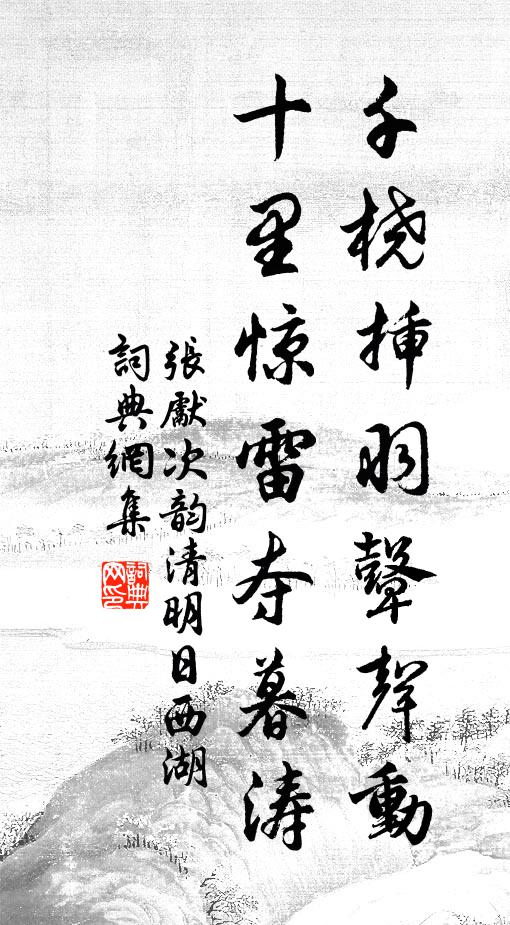 千桡插羽鼙声動
十里惊雷夺暮涛
張獻次韵清明日西湖
詞典網集
詞典网印